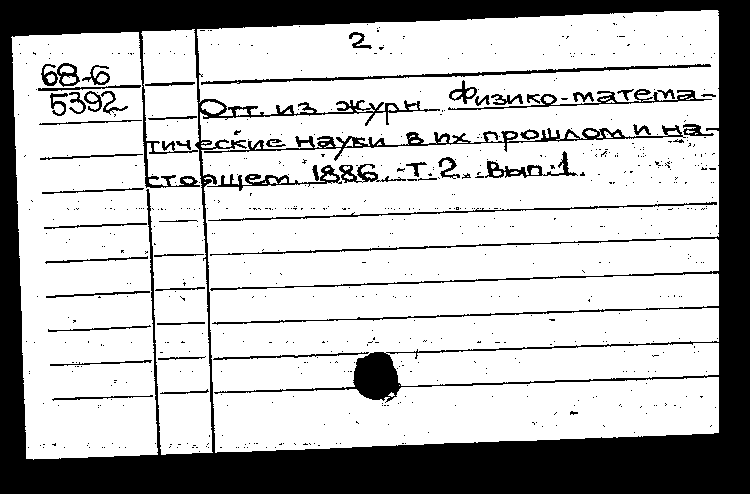 2.
68-6
5392
Отт. из журн. Физико-матема-
тические науки в их прошлом и на-
стоящем. 1886. Т. 2. Вып. 1.